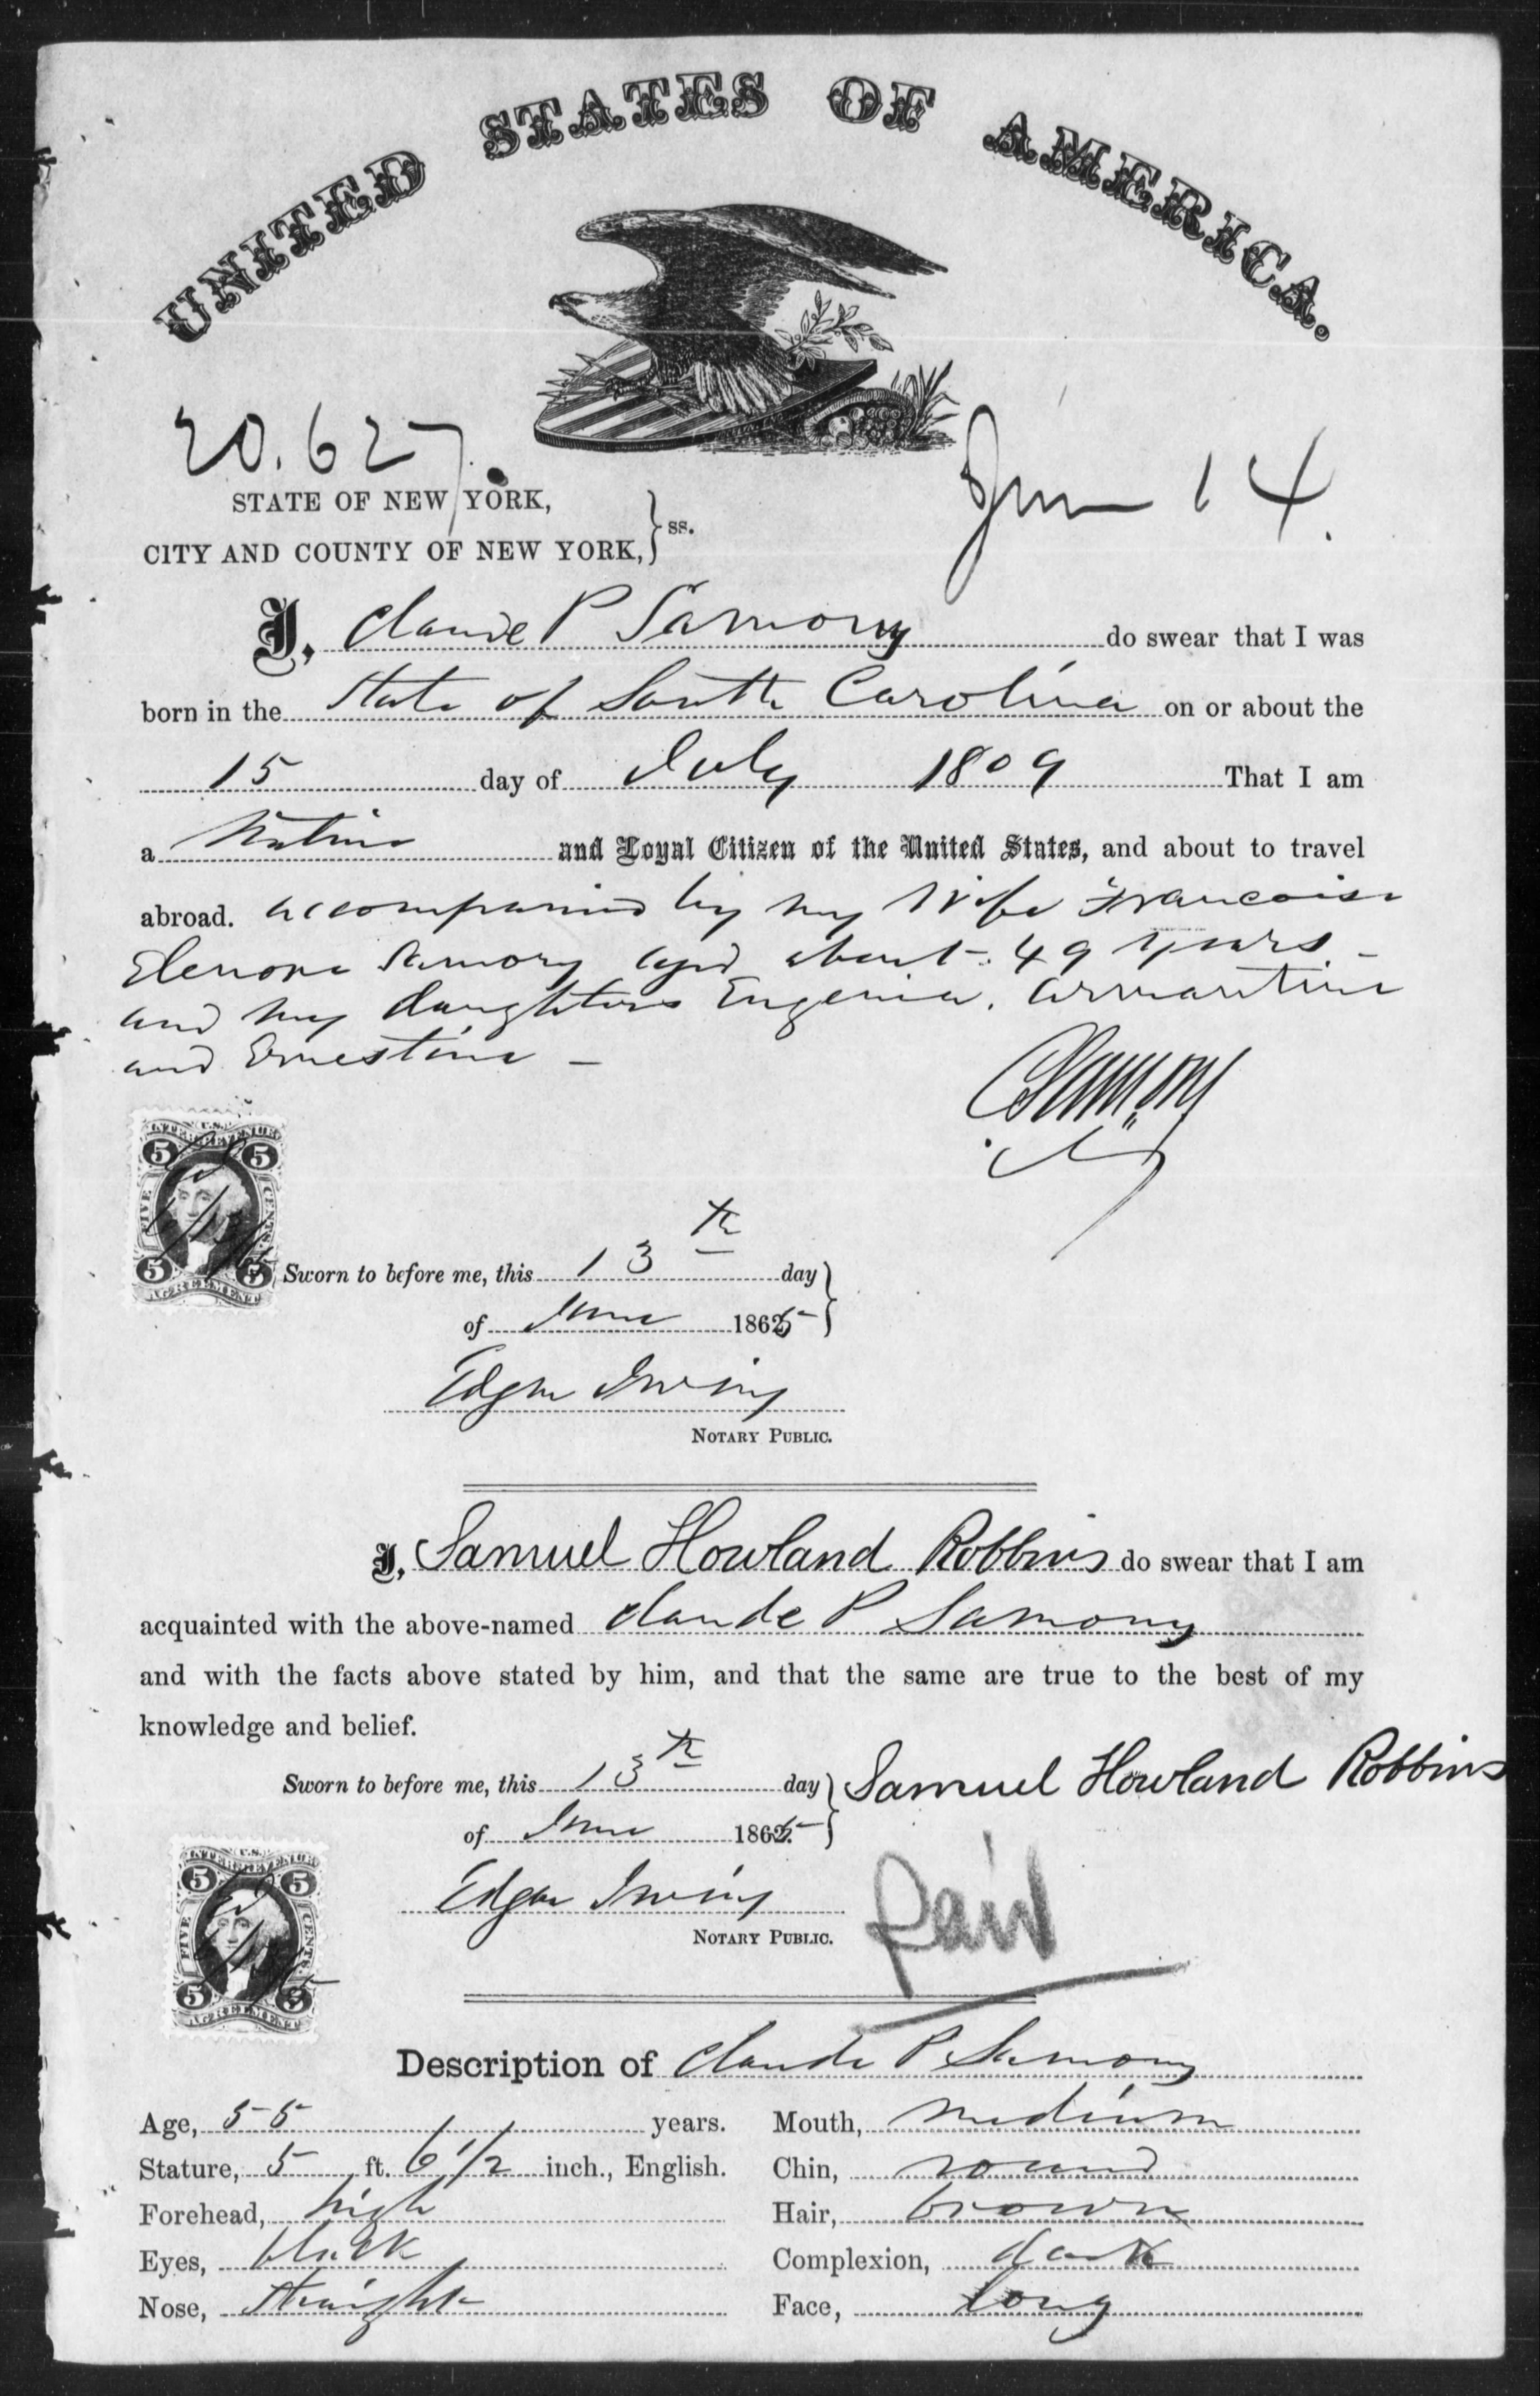 UNITED STATES OF AMERICA.
20.627.
June 14.
STATE OF NEW YORK,
CITY AND COUNTY OF NEW YORK, } ss.
I, Claude P Samory do swear that I was
born in the State of South Carolina on or about the
15 day of July 1809 That I am
a Native and Loyal Citizen of the United States, and about to travel
abroad. accompanied by my Wife Francoise
Elenore Samory aged about 49 years
and my daughters Eugenia, Armantine
and Ernestine –
C Samory
U.S.
INTER. REVENUE
5 5
FIVE CENTS
5 5
AGREEMENT
Sworn to before me, this 13th day
of June 1865
Edgar Irving
NOTARY PUBLIC.
I, Samuel Howland Robbins do swear that I am
acquainted with the above-named Claude P Samory
and with the facts above stated by him, and that the same are true to the best of my
knowledge and belief.
Sworn to before me, this 13th day } Samuel Howland Robbins
of June 1865
U.S.
INTER. REVENUE
5 5
FIVE CENTS
5 5
AGREEMENT
Edgar Irving
NOTARY PUBLIC.
Paid
Description of Claude P Samory
Age, 55 years. Mouth, medium
Stature, 5 ft. 6 1/2 inch., English. Chin, round
Forehead, high Hair, brown
Eyes, black Complexion, dark
Nose, straight Face, long